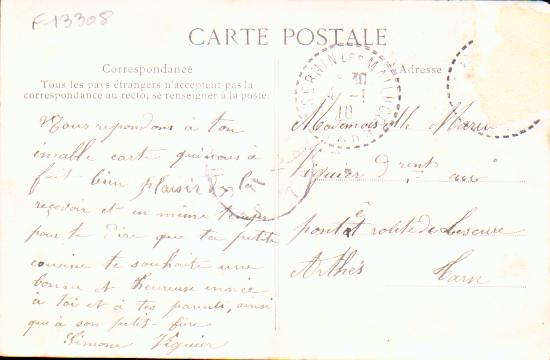 F-13308
CARTE POSTALE
Correspondance
Tous les pays étrangers n'acceptent pas la
correspondance au recto, se renseigner à la poste.
Adresse
Nous repondons a ton
carte qui nous à
fait bien plaisir de la
reçevoir et en même temps
pour te dire que ta petite
cousine te souhaite une
bonne et heureuse année
à toi et à tes parents, ainsi
que à son petit frère
Simone Viguier
Mademoiselle Marie
Viguier
route de Lescure
Arthès Tarn